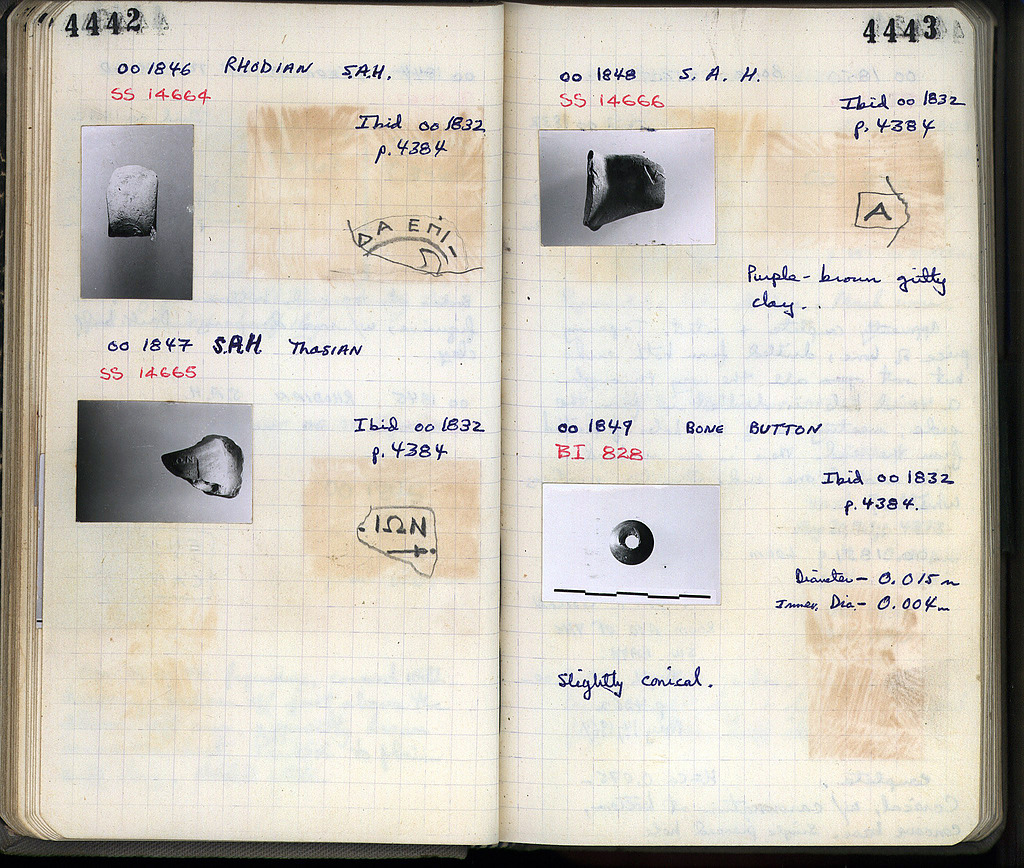 4442
oo 1846 RHODIAN S.A.H.
SS 14664
Ibid oo 1832
p. 4384
ΔΑ ΕΠΙ
oo 1847 S.A.H THASIAN
SS 14665
Ibid oo 1832
p. 4384
ΙΩΝ
4443
oo 1848 S. A. H.
SS 14666
Ibid oo 1832
p. 4384
A
Purple-brown gritty
clay..
oo 1849 BONE BUTTON
BI 828
Ibid oo 1832
p. 4384.
Diameter - 0.015 m
Inner. Dia. - 0.004 m
Slightly conical.